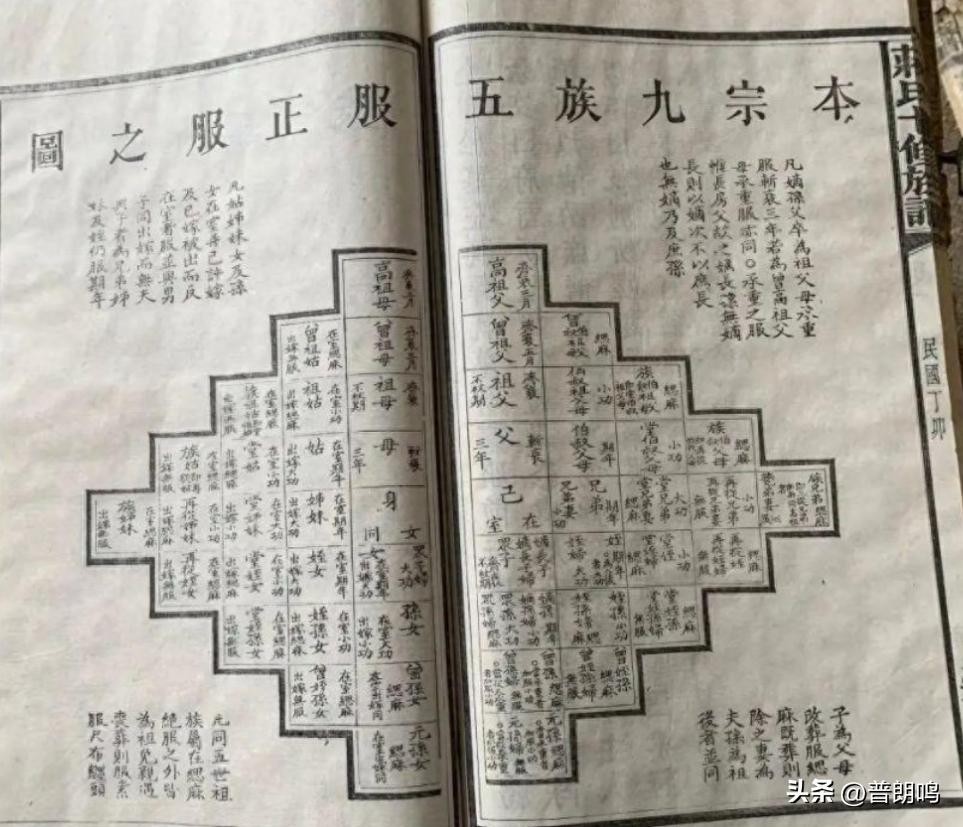 本宗九族五服正服之圖
民國丁卯
凡嫡孫父卒為祖父母承重
服斬衰三年若為曾高祖父
母承重服亦同○承重之服
惟長房父故之嫡長孫無嫡
長則以嫡次不以庶長
也無嫡乃及庶孫
凡姑姊妹女及孫
女在室并已許嫁
及已嫁被出而反
在室者服並與男
子同出嫁而無夫
與子者為兄弟姊
妹及姪仍服期年
齊衰三月
高祖父
高祖母
緦麻
齊衰五月
曾祖父
曾祖母
在室緦麻
曾祖姑
出嫁無服
緦麻
小功
伯叔祖父母
齊衰
祖父
不杖期
齊衰
祖母
不杖期
在室小功
祖姑
出嫁緦麻
在室緦麻
出嫁無服
緦麻
小功
堂伯叔父母
期年
伯叔父母
斬衰
父
三年
斬衰
母
三年
在室期年
姑
出嫁大功
在室小功
堂姑
出嫁緦麻
在室緦麻
出嫁無服
族兄弟緦麻
小功
再從兄弟
無服
大功
堂兄弟
緦麻
堂兄弟妻
期年
兄弟
小功
兄弟妻
己身
在室女同
在室期年
姊妹
出嫁大功
在室大功
堂姊妹
出嫁小功
在室小功
再從姊妹
出嫁緦麻
在室緦麻
族姊妹
出嫁無服
緦麻
再從姪
無服
小功
堂姪
緦麻
堂姪婦
姪期年
姪婦
大功
嫡長子
嫡長子婦
眾子
眾子婦
大功
女
在室期年
出嫁大功
在室期年
姪女
出嫁大功
在室小功
堂姪女
出嫁緦麻
在室緦麻
再從姪女
出嫁無服
緦麻
堂姪孫
堂姪孫婦
無服
姪孫小功
姪孫婦
緦麻
嫡孫期年
嫡孫婦小功
眾孫大功
眾孫婦緦麻
孫女
在室大功
出嫁小功
在室小功
姪孫女
出嫁緦麻
在室緦麻
堂姪孫女
出嫁無服
曾姪孫
緦麻
曾姪孫婦
無服
曾孫緦麻
曾孫婦無服
曾孫女
緦麻
在室緦麻
曾姪孫女
出嫁無服
元孫緦麻
元孫婦無服
元孫女
緦麻
子為父母
改葬服緦
麻既葬則
除之妻為
夫孫為祖
後者並同
凡同五世祖
族屬在緦麻
絕服之外皆
為袒免親遇
喪葬則服素
服尺布纏頭
头条 @普朗鸣